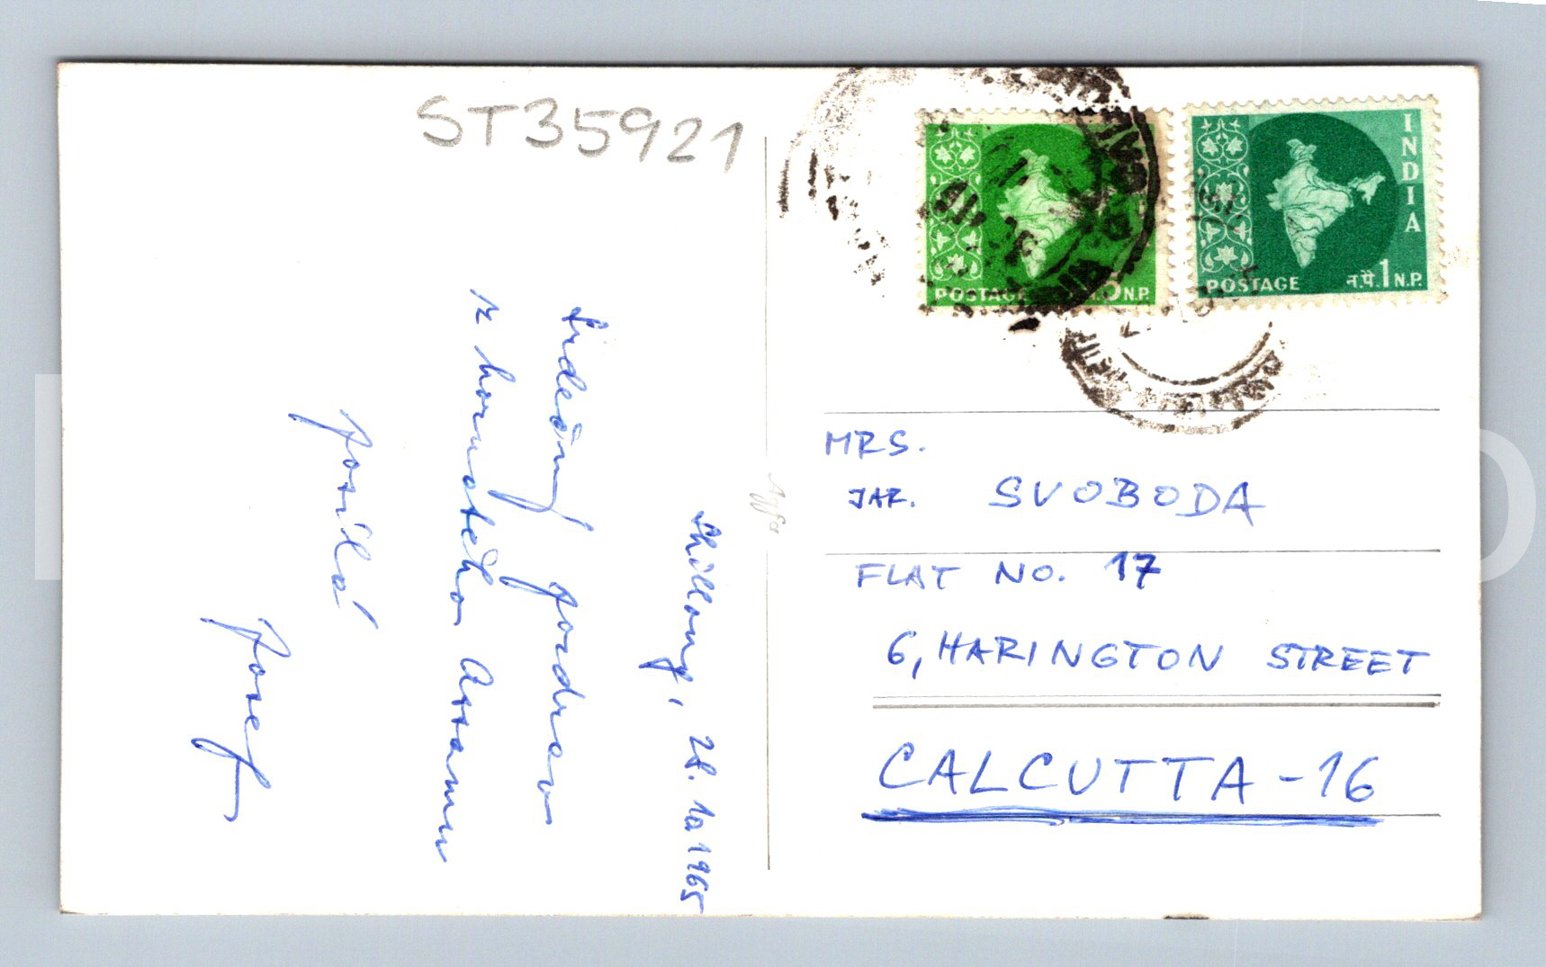 ST35921
Shillong, 28. 10 1965
Srdečný pozdrav
z hornatého Assamu
posílá
Josef
POSTAGE
N.P.
INDIA
POSTAGE न.पै.1 N.P.
MRS.
JAR. SVOBODA
FLAT NO. 17
6, HARINGTON STREET
CALCUTTA-16